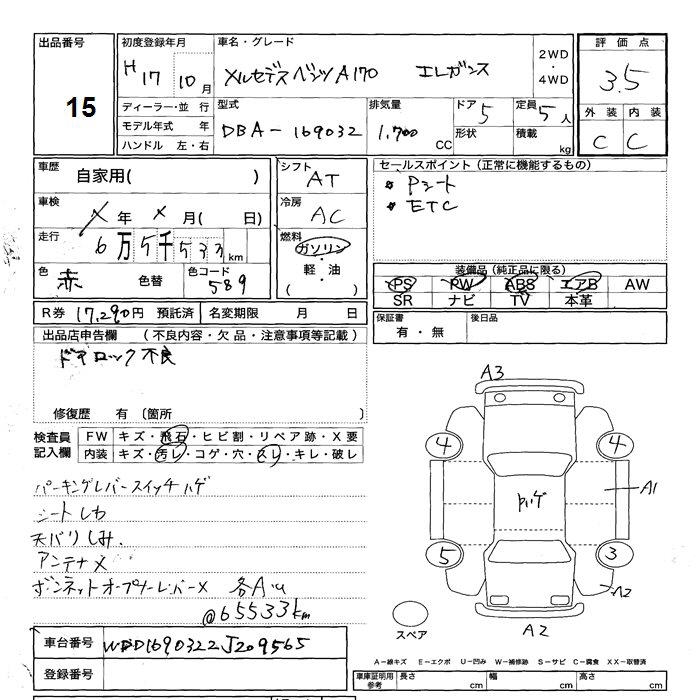 出品番号
15
初度登録年月
H17 10月
車名・グレード
メルセデスベンツA170 エレガンス
2WD
・
4WD
評価点
3.5
外装 内装
C C
ディーラー・並行
モデル年式 年
ハンドル 左・右
型式
DBA-169032
排気量
1,700
CC
ドア
5
定員
5人
形状
積載
kg
車歴
自家用( )
車検
X年 X月( 日)
走行
6万5千533km
色
赤
色替
色コード
589
シフト
AT
冷房
AC
燃料
ガソリン
・
軽・油
( )
セールスポイント(正常に機能するもの)
* Pシート
* ETC
装備品(純正品に限る)
PS PW ABS エアB AW
SR ナビ TV 本革
保証書
有・無
後日品
R券 17,290円 預託済 名変期限 月 日
出品店申告欄 (不良内容・欠品・注意事項等記載)
ドアロック不良
修復歴 有 〔箇所 〕
検査員
記入欄
FW キズ・飛石・ヒビ割・リペア跡・X要
内装 キズ・汚レ・コゲ・穴・スレ・キレ・破レ
パーキングレバースイッチハゲ
シートしわ
天バリしみ.
アンテナX
ボンネットオープナーレバーX 各AU
@65533km
A3
4
4
A1
Pハゲ
5
3
A2
スペア
A2
A-線キズ E-エクボ U-凹み W-補修跡 S-サビ C-腐食 XX-取替済
車台番号
WDD1690322J209565
登録番号
車庫証明用
参考
長さ cm
幅 cm
高さ cm